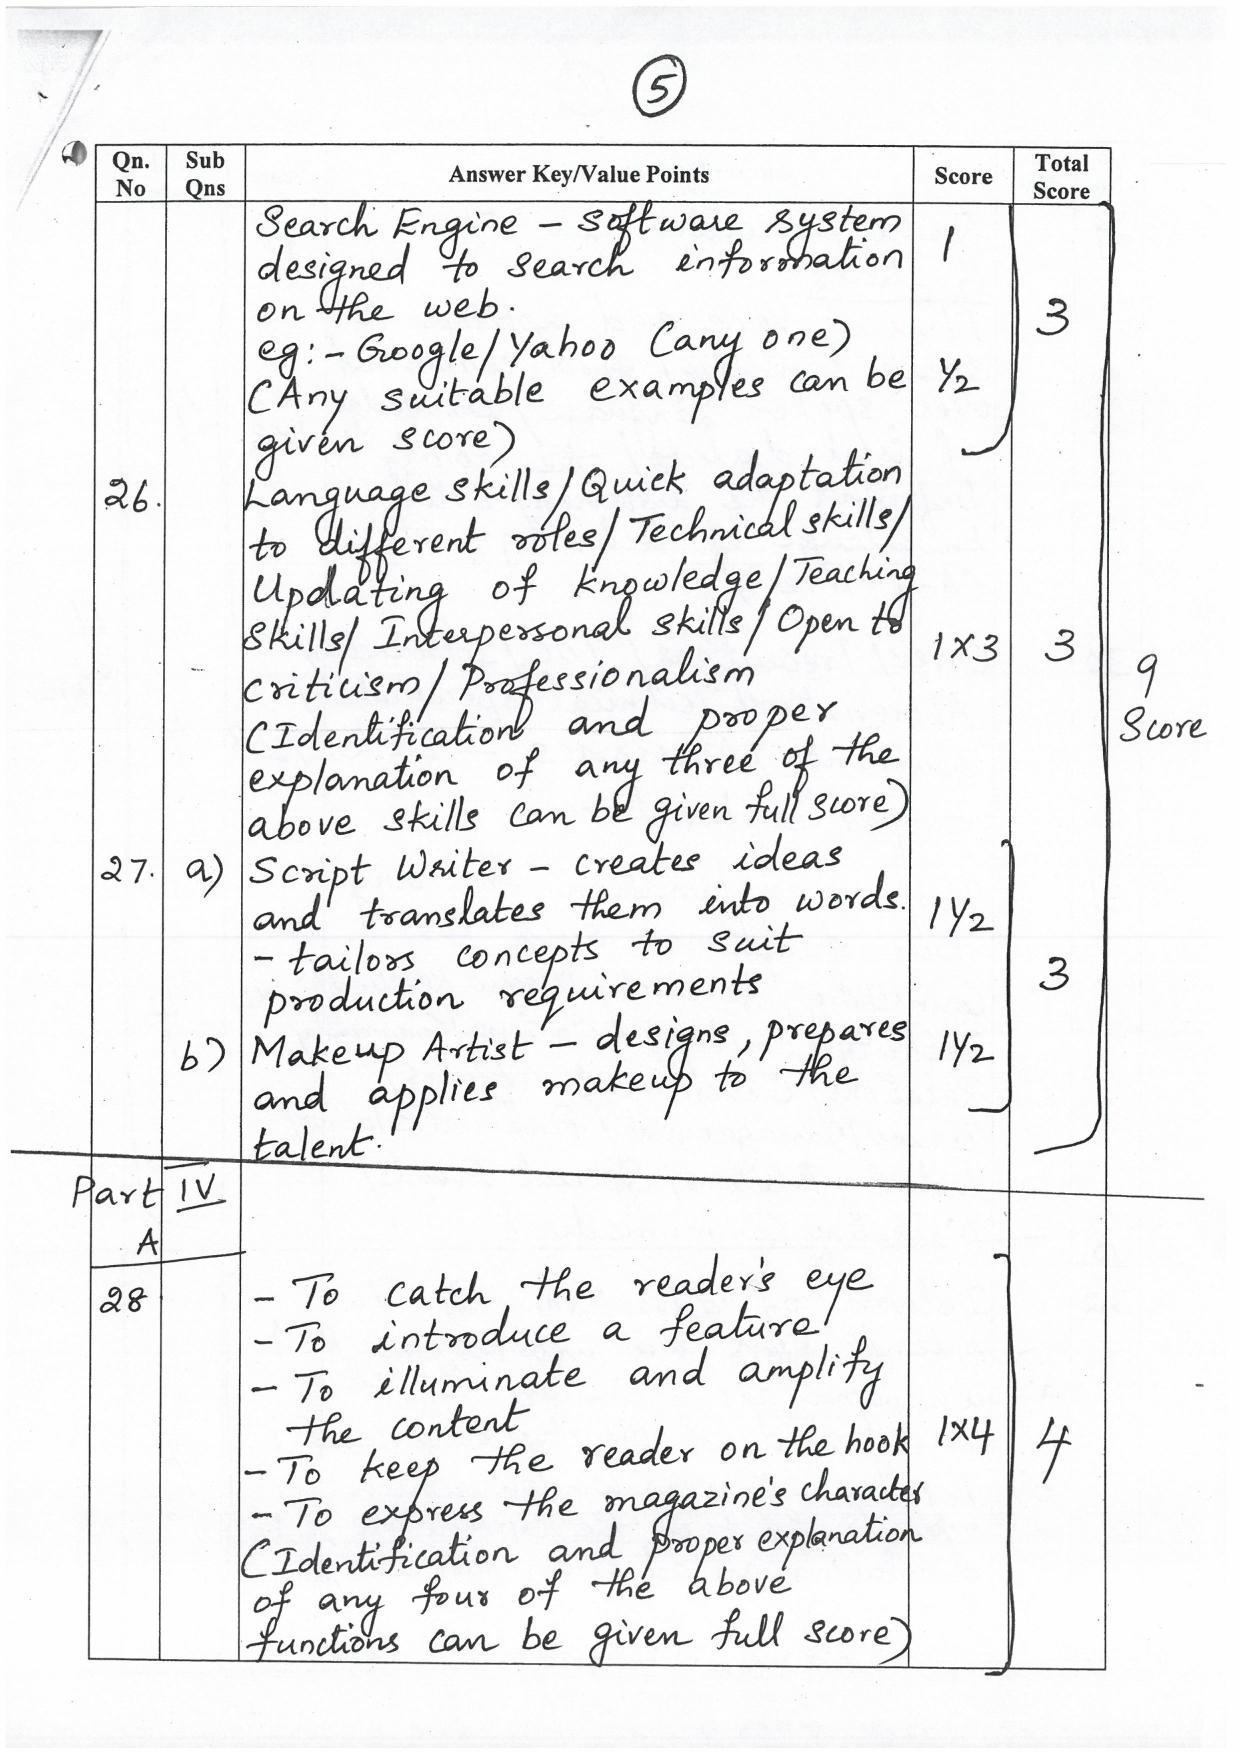 5
Qn. No Sub Qns Answer Key/Value Points Score Total Score
Search Engine – Software system
designed to search information 1
on the web. 3
eg:- Google/Yahoo (any one)
(Any suitable examples can be ½
given score)
26. Language skills/Quick adaptation
to different roles/Technical skills/
Updating of knowledge/Teaching
Skills/Interpersonal skills/Open to 1×3 3
criticism/Professionalism 9
(Identification and proper Score
explanation of any three of the
above skills can be given full score)
27. a) Script Writer – creates ideas
and translates them into words. 1½
- tailors concepts to suit 3
production requirements
b) Makeup Artist – designs, prepares 1½
and applies makeup to the
talent.
Part IV
A
28 - To catch the reader's eye
- To introduce a feature
- To illuminate and amplify
the content
- To keep the reader on the hook 1×4 4
- To express the magazine's character
(Identification and proper explanation
of any four of the above
functions can be given full score)